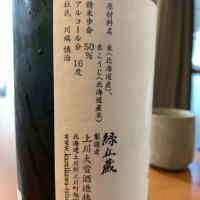 原材料名 米(北海道産)、
米こうじ(北海道産米)
精米歩合 50%
アルコール分 16度
杜氏 川端慎治
緑丘蔵
製造者
上川大雪酒造株
北海道上川郡上川町旭町
www.kamikawa-tais